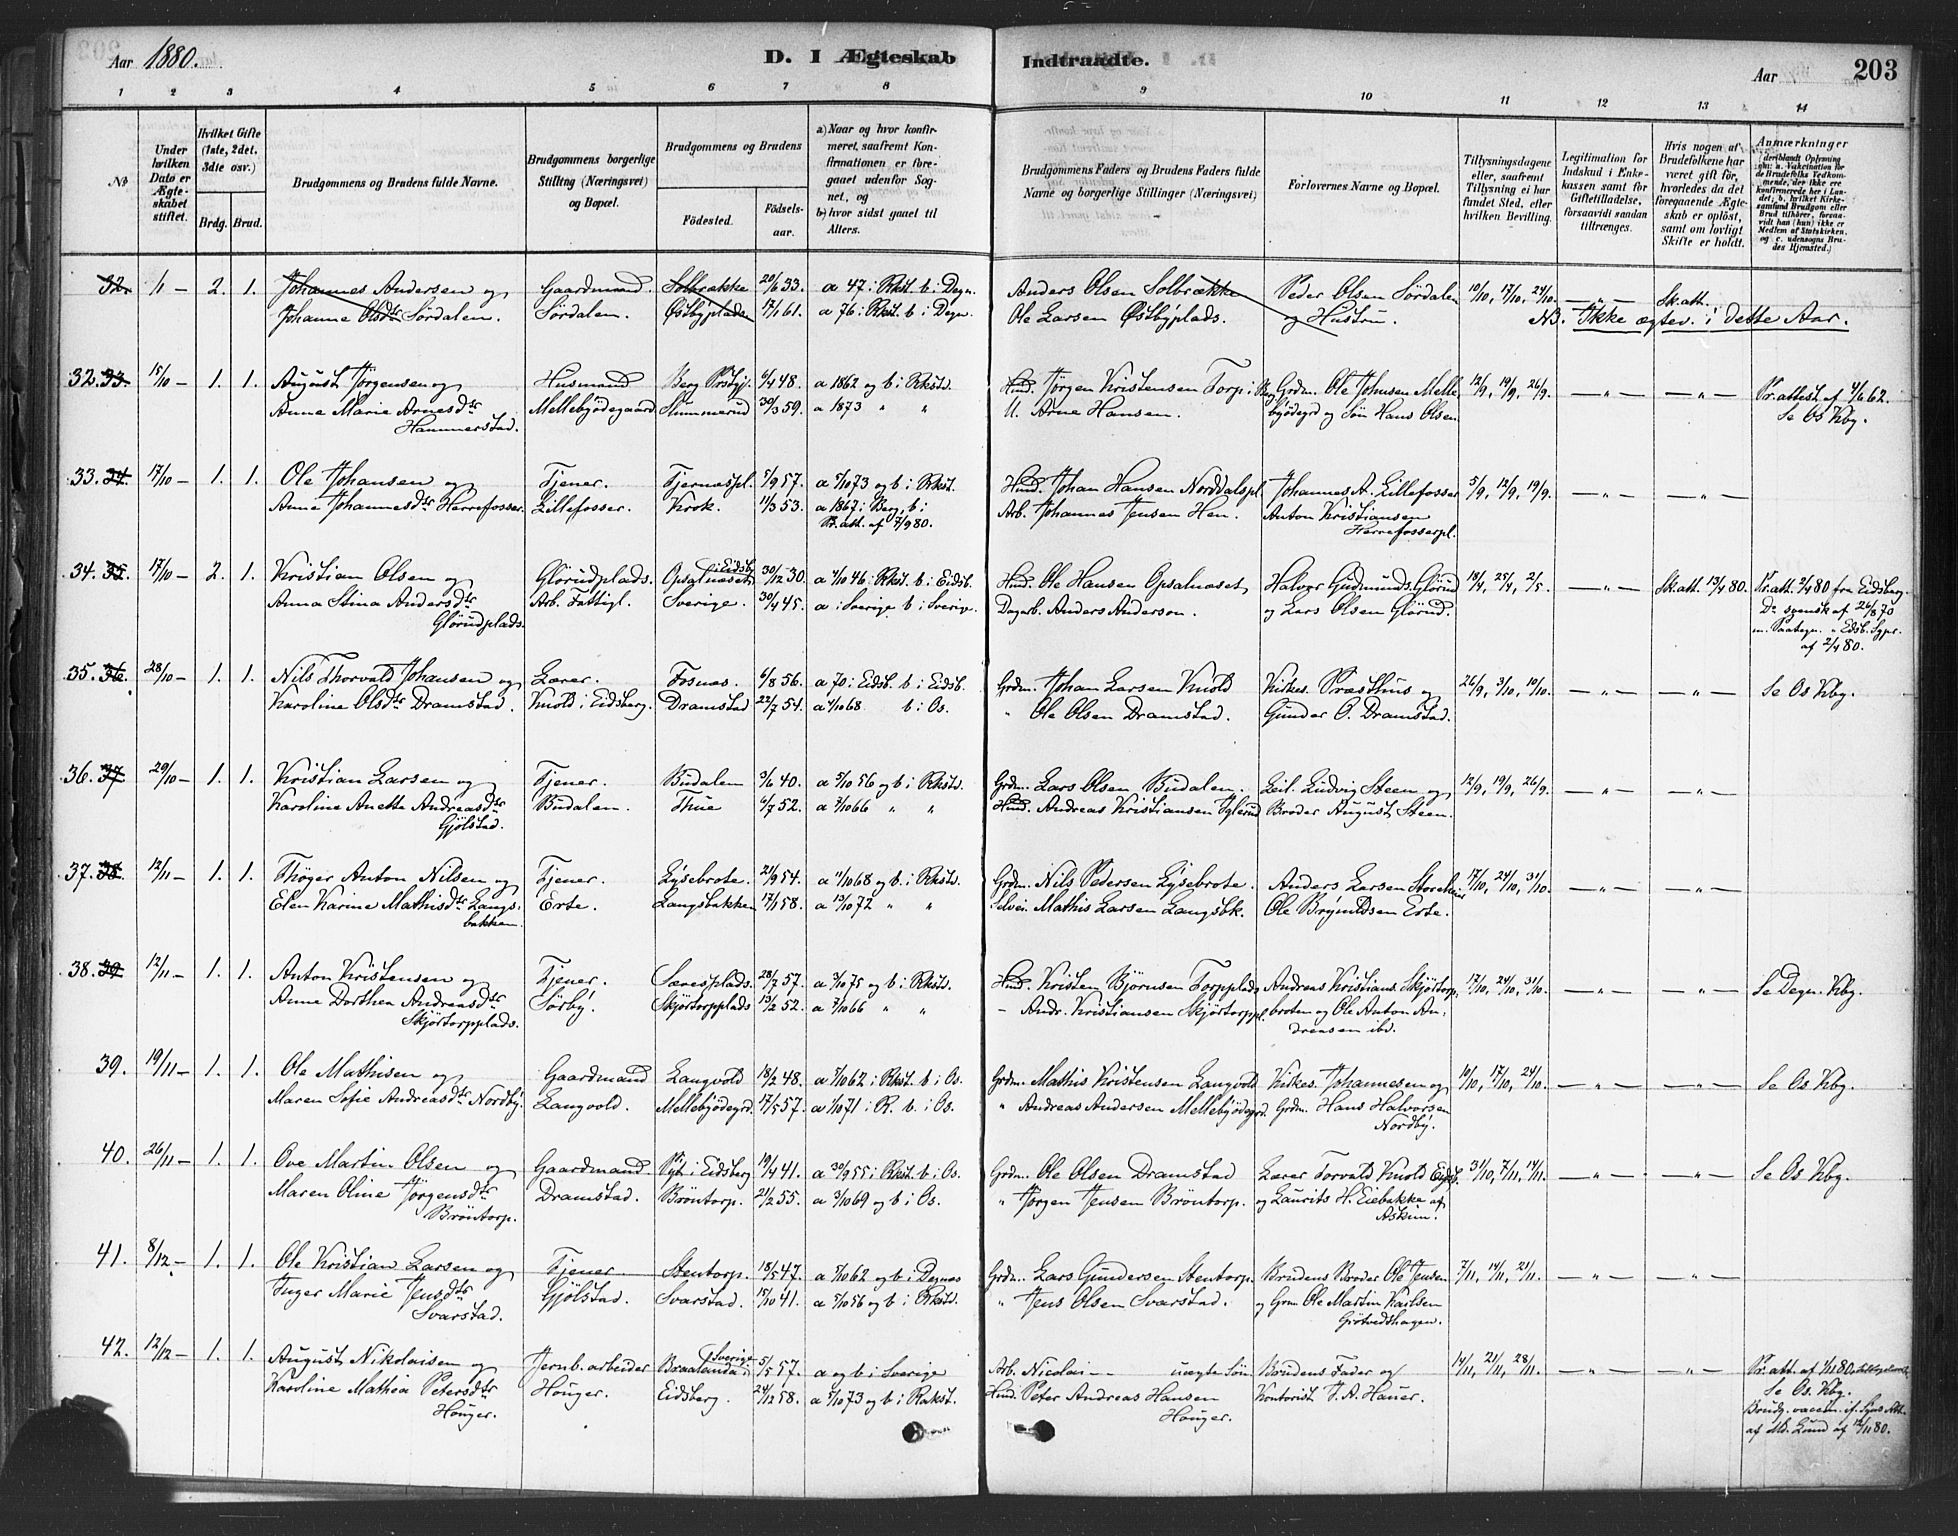 Aar 1880.
D. I Ægteskab Indtraadte.
Aar
203
1 2 3 4 5 6 7 8 9 10 11 12 13 14
No
Under hvilken Dato er Ægteskabet stiftet.
Hvilket Gifte (1ste, 2det, 3die osv.)
Brdg. Brud.
Brudgommens og Brudens fulde Navne.
Brudgommens borgerlige Stilling (Næringsvei) og Bopæl.
Brudgommens og Brudens
Födested. Födselsaar.
a) Naar og hvor konfirmeret, saafremt Konfirmationen er foregaaet udenfor Sognet, og
b) hvor sidst gaaet til Alters.
Brudgommens Faders og Brudens Faders fulde Navne og borgerlige Stillinger (Næringsvei)
Forlovernes Navne og Bopæl.
Tillysningsdagene eller, saafremt Tillysning ei har fundet Sted, efter hvilken Bevilling.
Legitimation for Indskud i Enkekassen samt for Giftetilladelse, forsaavidt saadan tiltrænges.
Hvis nogen af Brudefolkene har været gift før, hvorledes da det foregaaende Ægteskab er oplöst, samt om lovligt Skifte er holdt.
Anmærkninger (deriblandt Oplysning om: a. Vakcination for de Brudefolks Vedkommende, der ikke ere konfirmerede her i Landet; b. hvilket Kirkesamfund Brudgom eller Brud tilhörer, forsaavidt han (hun) ikke er Medlem af Statskirken, og c. udensogns Brudes Hjemsted.)
32. 1/1 – 2. 1. Johannes Andersen og Gaardmand Solbrække 20/6 33. a 47 i Rkst. b. Degn. Anders Olsen Solbrække Peder Olsen Sördalen 10/10, 17/10, 24/10. – " – Sk. att.
Johanne Olsdtr Sördalen. Sördalen. Östbyplads 17/1 61. a 76 i Rkst. b i Degn. Ole Larsen Östbyplads. og Hustru. NB. Ikke ægtev. i dette Aar.
32. 33. 15/10 – 1. 1. August Jörgensen og Husmand Berg Prstgj. 6/4 48. a 1862 og b i Rkstd. Hmd. Jörgen Kristensen Torp i Berg Grdm. Ole Johnsen Melle 12/9, 19/9, 26/9. – " – – " – Pr. attest af 4/6 62.
Anne Marie Arnesdtr Mellebjödegaard Hummerud 30/3 59. a 1873 " " U. Arne Hansen. bjödegrd og Sön Hans Olsen Se Os Kbg.
Hammerstad.
33. 34. 17/10 – 1. 1. Ole Johansen og Tjener. Tjernæspl. 5/9 57. a 5/10 73 og b i Rkst. Hmd. Johan Hansen Norddalspl. Johannes A. Lillefosser 5/9, 12/9, 19/9. – " – – " –
Anne Johannesdtr Herrefosser. Lillefosser. Krok. 11/3 53. a 1867 i Berg, b i Arb. Johannes Jensen Hen. Anton Kristiansen
Pr. att. af 7/9 80. Herrefosserpl.
34. 35. 17/10 – 2. 1. Kristian Olsen og Glörudplads. Opsalnæset i Eidsb. 30/12 30. a 4/10 46 i Rkst. b i Eidsb. Hmd. Ole Hansen Opsalnæset Halvor Gudmunds. Glörud 18/4, 25/4, 2/5. – " – Sk. att. 13/4 80. Pr. att. 2/4 80 fra Eidsberg.
Anna Stina Andersdtr Arb. Fattigl. Sverige. 30/4 45. a i Sverige b i Sverige. Dagarb. Anders Anderson. og Lars Olsen Glörud. Do svensk af 26/8 70
Glörudplads. m. Paategn. " Edsb. Sgpr.
af 2/4 80.
35. 36. 28/10 – 1. 1. Nils Thorvald Johansen og Lærer. Fosnæs. 4/8 56. a 70 i Eidsb. b i Eidsb. Grdm. Johan Larsen Knold Kirkes. Præsthus og 26/9, 3/10, 10/10. – " – – " – Se Os Kbg.
Karoline Olsdtr Dramstad. Knold i Eidsberg. Dramstad 22/7 54. a 4/10 68 b i Os. " Ole Olsen Dramstad. Gunder O. Dramstad.
36. 37. 29/10 – 1. 1. Kristian Larsen og Tjener. Budalen 3/6 40. a 5/10 56 og b i Rkstd. Grdm. Lars Olsen Budalen. Leil. Ludvig Steen og 12/9, 19/9, 26/9. – " – – " –
Karoline Anette Andreasdtr Budalen. Thue 6/7 52. a 7/10 66 " " Hmd. Andreas Kristiansen Iglerud Broder August Steen.
Gjölstad.
37. 38. 12/11 – 1. 1. Thöger Anton Nilsen og Tjener. Lysebrote. 21/9 54. a 11/10 68 og b i Rkstd. Grdm. Nils Pedersen Lysebrote. Anders Larsen 17/10, 24/10, 31/10. – " – – " –
Elen Karine Mathisdtr Langs- Erte. Langsbakken 17/1 58. a 13/10 72 " " Selvei. Mathis Larsen Langsbk. Ole Brynildsen Erte.
bakken
38. 39. 12/11 – 1. 1. Anton Kristensen og Tjener. Særesplads. 28/7 57. a 3/10 75 og b i Rkst. Hmd. Kristen Björnsen Torpplads Andreas Kristians. Skjörtorp- 17/10, 24/10, 31/10. – " – – " – Se Degn. Kbg.
Anne Dorthea Andreasdtr Sörby. Skjörtorpplads 13/2 52. a 7/10 66 " " – Andr. Kristiansen Skjörtorppl. broten og Ole Anton An-
Skjörtorpplads. dreasen ibd.
39. 19/11 – 1. 1. Ole Mathisen og Gaardmand Langvold 18/2 48. a 7/10 62 i Rkst. b i Os. Grdm. Mathis Kristensen Langvold Kirkes. Johannesen og 10/10, 17/10, 24/10. – " – – " – Se Os Kbg.
Maren Sofie Andreasdtr Nordby. Langvold. Mellebjödegrd. 17/5 57. a 1/10 71 i R. b. i Os. " Andreas Andersen Mellebjödegrd. Grdm. Hans Halvorsen
Nordby.
40. 26/11 – 1. 1. Ove Martin Olsen og Gaardmand i Eidsberg 19/4 41. a 30/9 55 i Rkst. b i Os. Grdm. Ole Olsen Dramstad Lærer Torvald Knold Eidsb. 31/10, 7/11, 14/11. – " – – " – Se Os Kbg.
Maren Oline Jörgensdtr Dramstad. Bröntorp. 21/2 55. a 3/10 69 og b i Os. " Jörgen Jensen Bröntorp. og Laurits H. Eiebakke af
Bröntorp. Askim.
41. 8/12 – 1. 1. Ole Kristian Larsen og Tjener Stentorp. 18/5 47. a 5/10 62 og b i Degnæs Grdm. Lars Gundersen Stentorp. Brudens Broder Ole Jensen 7/11, 14/11, 21/11. – " – – " –
Inger Marie Jensdtr Gjölstad. Svarstad. 15/10 41. a 5/10 56 og b i Rkstd. " Jens Olsen Svarstad. og Grm Ole Martin Karlsen
Svarstad. Grötvedshagen.
42. 12/12 – 1. 1. August Nikolaisen og Jernb. arbeider Braalanda i Sverige 5/5 57. a og b i Sverige Arb. Nicolai – – uægte Sön Brudens Fader og 14/11, 21/11, 28/11. – " – – " – Pr. att. af 1/11 80.
Karoline Mathea Petersdtr Höuger. Eidsberg. 24/12 58. a 5/10 73 og b i Rakst. Hmd. Peter Andreas Hansen Kontorist T. A. Hauer. Se Os. Kbg.
Höuger. Höuger. Brudg. vaccin. if. Lyns Att.
af Md. Lund af 12/11 80.